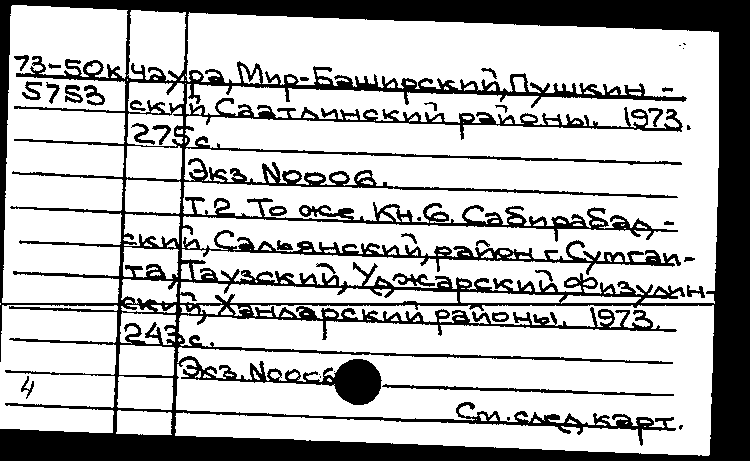 73-50к чаура, Мир-Баширский, Пушкин-
5753 ский, Саатлинский районы. 1973.
275с.
Экз. N0006.
Т.2. То же. Кн.6. Сабирабад-
ский, Сальянский, район г. Сумгаи-
та, Таузский, Уджарский, Физулин-
ский, Ханларский районы. 1973.
243с.
Экз. N0006
4
См. след. карт.